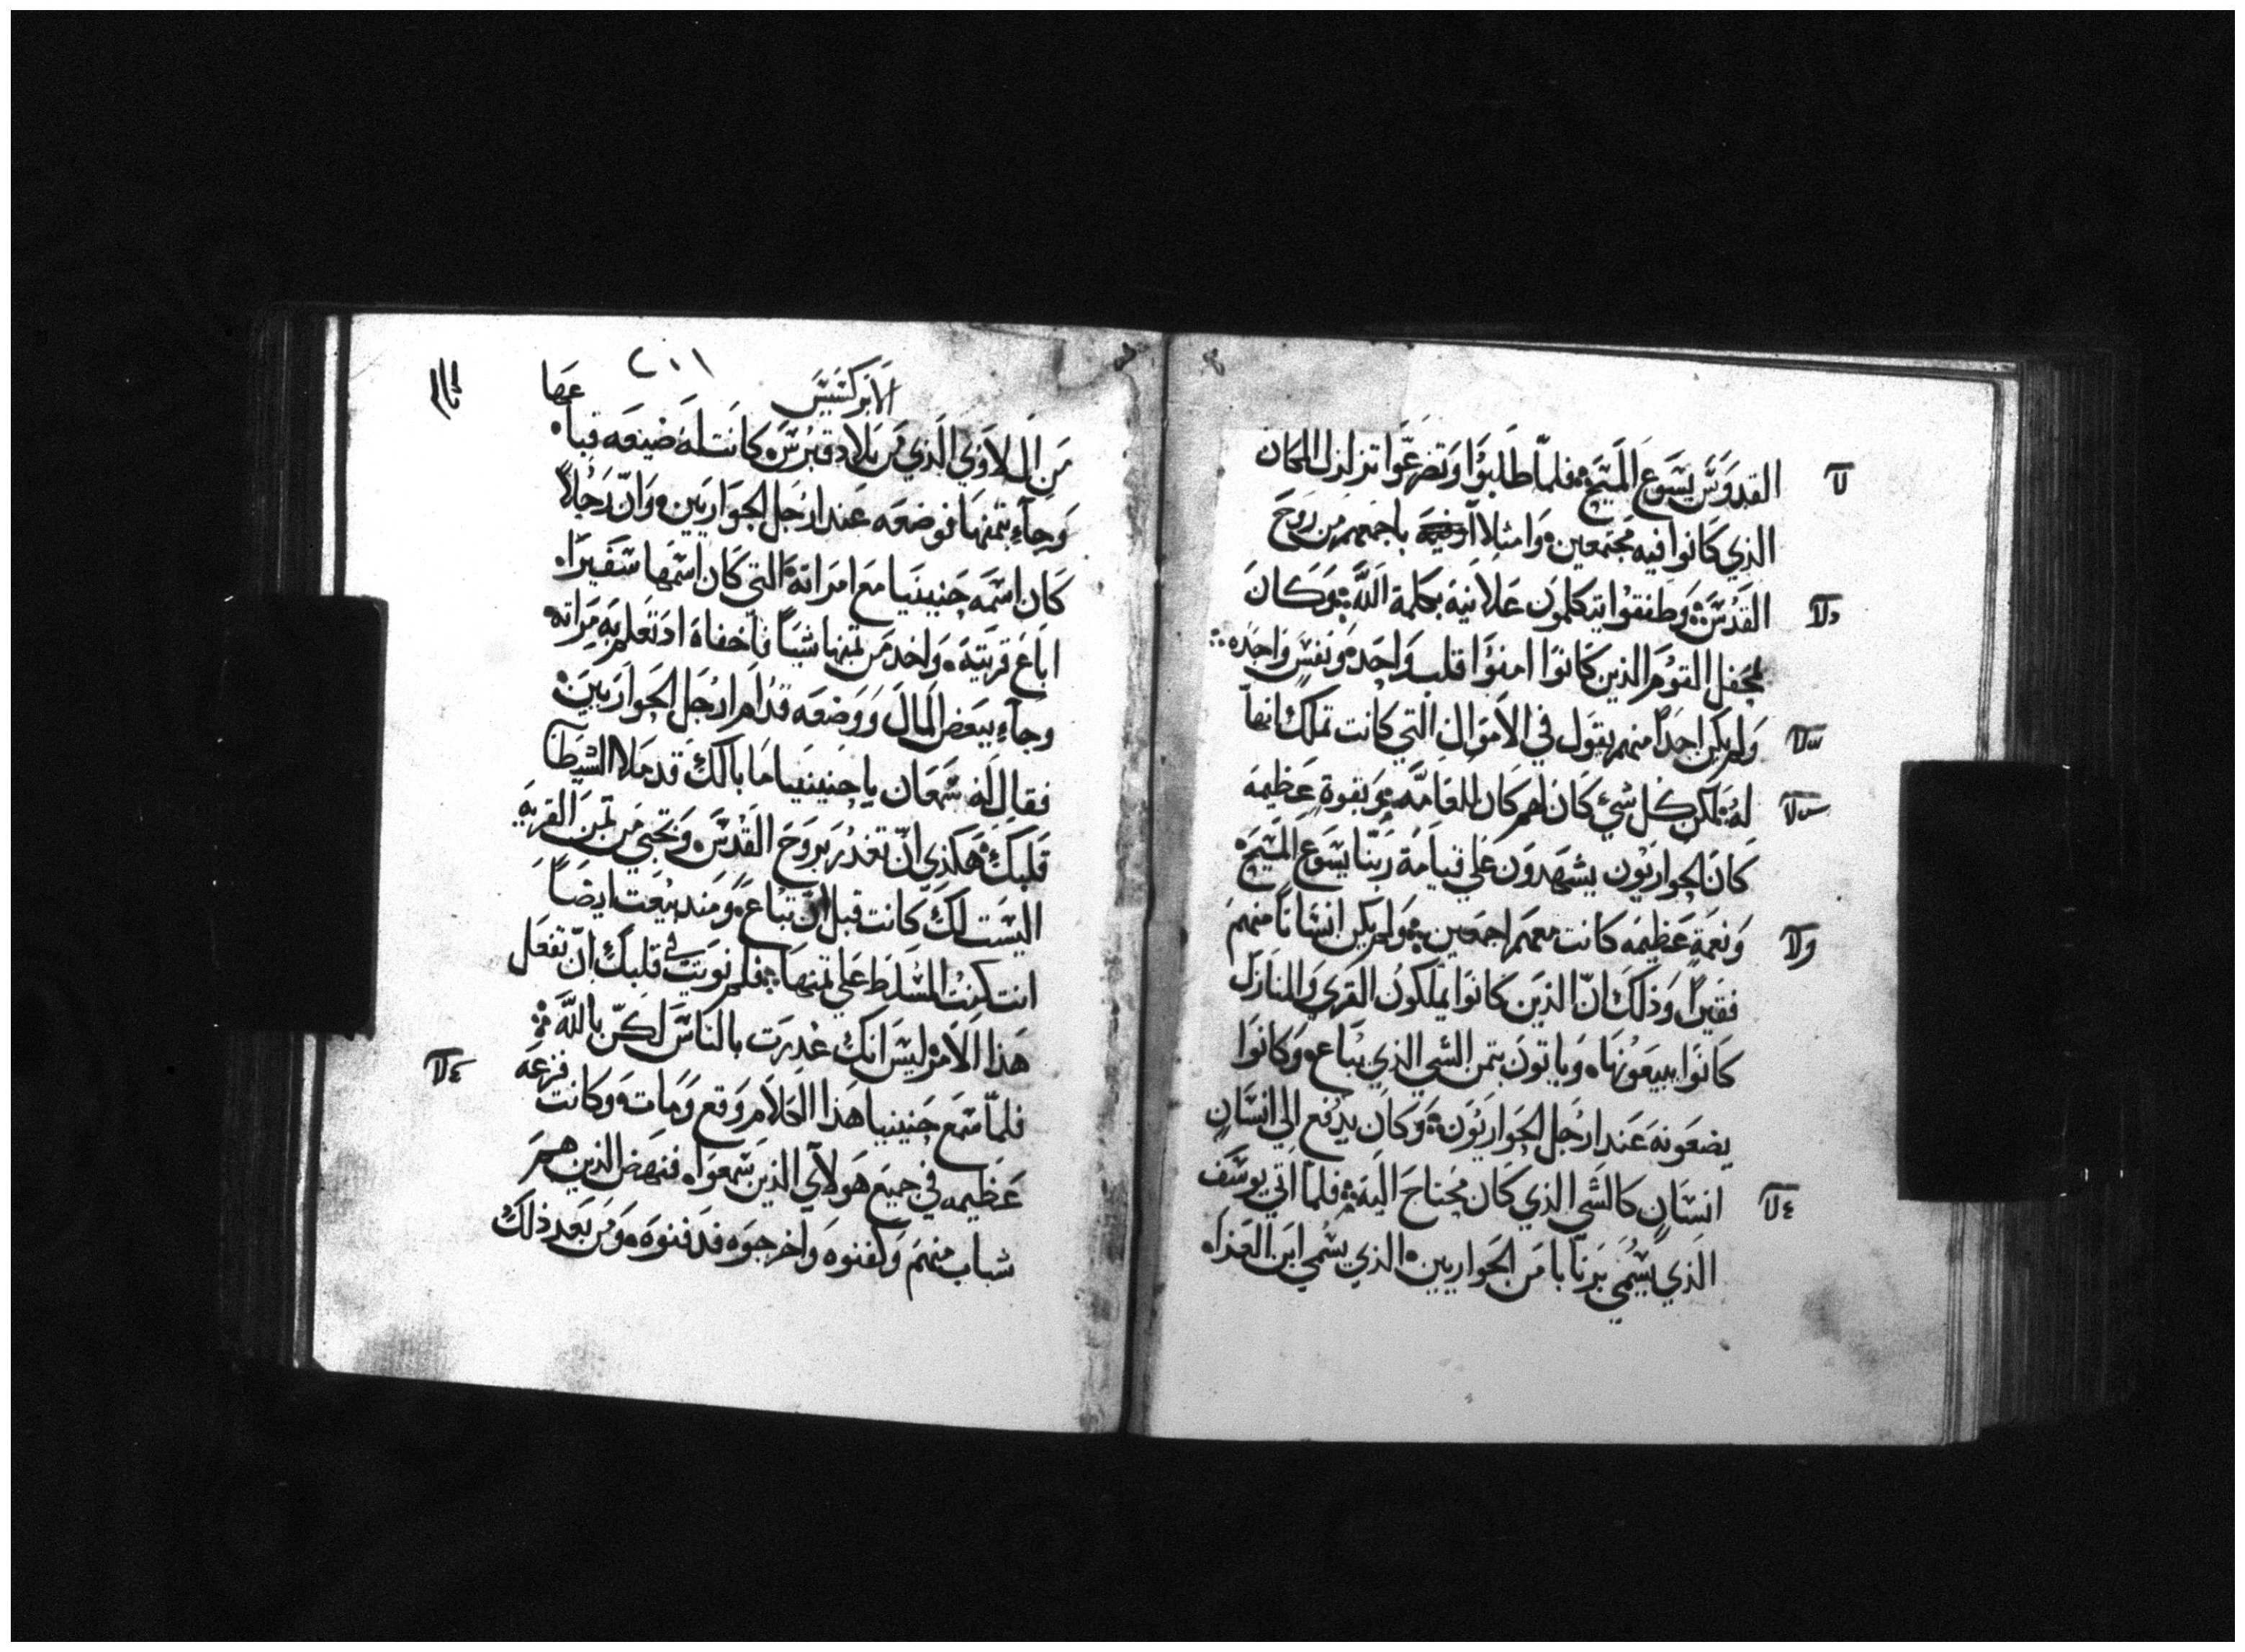 القدوس يسوع المسيح فلما طلبوا وتضرعوا تزلزل المكان
الذي كانوا فيه مجتمعين وامتلاا باجمعهم من روح
القدس وطفقوا يتكلمون علانية بكلمة الله وكان
لمحفل القوم الذين كانوا امنوا قلب واحده ونفس واحده
ولم يكن احداً منهم يقول في الاموال التي كانت تملك انها
له لكن كل شي كان لهم كان للعامه وبقوة عظيمه
كان الحواريون يشهدون علي قيامة ربنا يسوع المسيح
ونعمة عظيمه كانت معهم اجمعين ولم يكن انساناً منهم
فقيراً وذلك ان الذين كانوا يملكون القري والمنازل
كانوا يبيعونها وياتون بثمن الشي الذي يباع وكانوا
يضعونه عند ارجل الحواريون وكان يدفع الي انسان
انسان كالشي الذي كان محتاج اليه فلما اتي يوسف
الذي يسمي برنابا من الحواريين الذي يسمي ابن العزاه
٢٠١
الابركسيس
من اللاوي الذي من بلاد قبرس كانت له ضيعه فباعها
وجاء بثمنها فوضعه عند ارجل الحواريين وان رجلاً
كان اسمه حنينيا مع امراته التي كان اسمها سفيرا
اباع قريته واخد من ثمنها شياً فاخفاه اد تعلم به مراته
وجاء ببعض المال ووضعه قدام ارجل الحواريين
فقال له شمعان يا حنينيا ما بالك قد ملا الشيطان
قلبك هكذي ان تغدر بروح القدس وتخبي من ثمن القريه
اليست لك كانت قبل ان تباع ومند بيعت ايضاً
انت كنت المسلط علي ثمنها فلم نويت في قلبك ان تفعل
هذا الامر ليس انك غدرت بالناس لكن بالله
فلما سمع حنينيا هذا الكلام وقع ومات وكانت فزعه
عظيمه في جميع هولاي الذين سمعوا فنهض الذين هم
شباب منهم وكفنوه واخرجوه فدفنوه ومن بعد ذلك